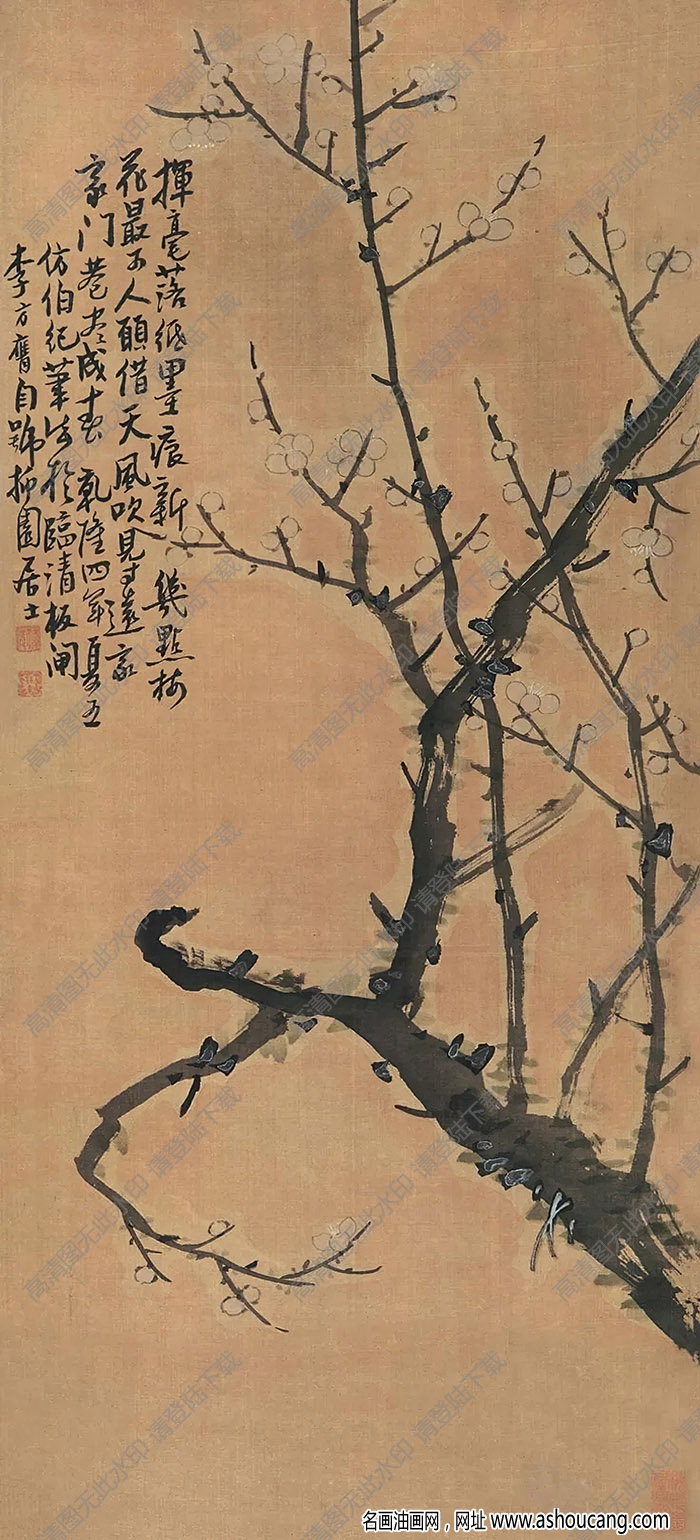 揮毫落紙墨痕新 幾點梅
花最可人願借天風吹見遠家
家門巷盡成春 乾隆四年夏五
仿伯紀筆法於臨清板閘
李方膺自號抑園居士
高清图无此水印 请登陆下载
名画油画网，网址 www.ashoucang.com